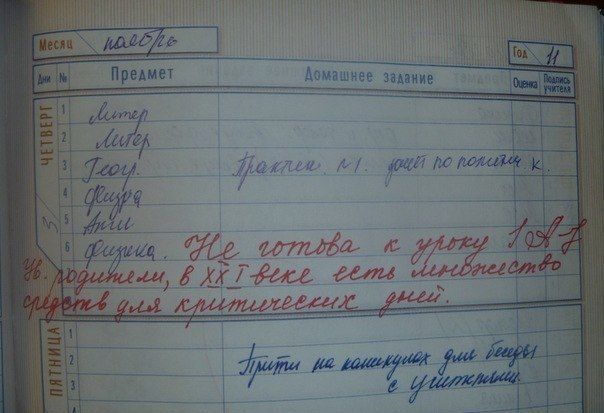 Месяц ноябрь Год 11
Дни № Предмет Домашнее задание Оценка Подпись учителя
ЧЕТВЕРГ 3
1 Литер
2 Литер
3 Геогр. Практич. №1. по политич. к.
4 Физра
5 Англ
6 Физика. Не готова к уроку
Ув. родители, в XXI веке есть множество
средств для критических дней.
ПЯТНИЦА
1
2 Прийти на каникулах для беседы
3 с учителями